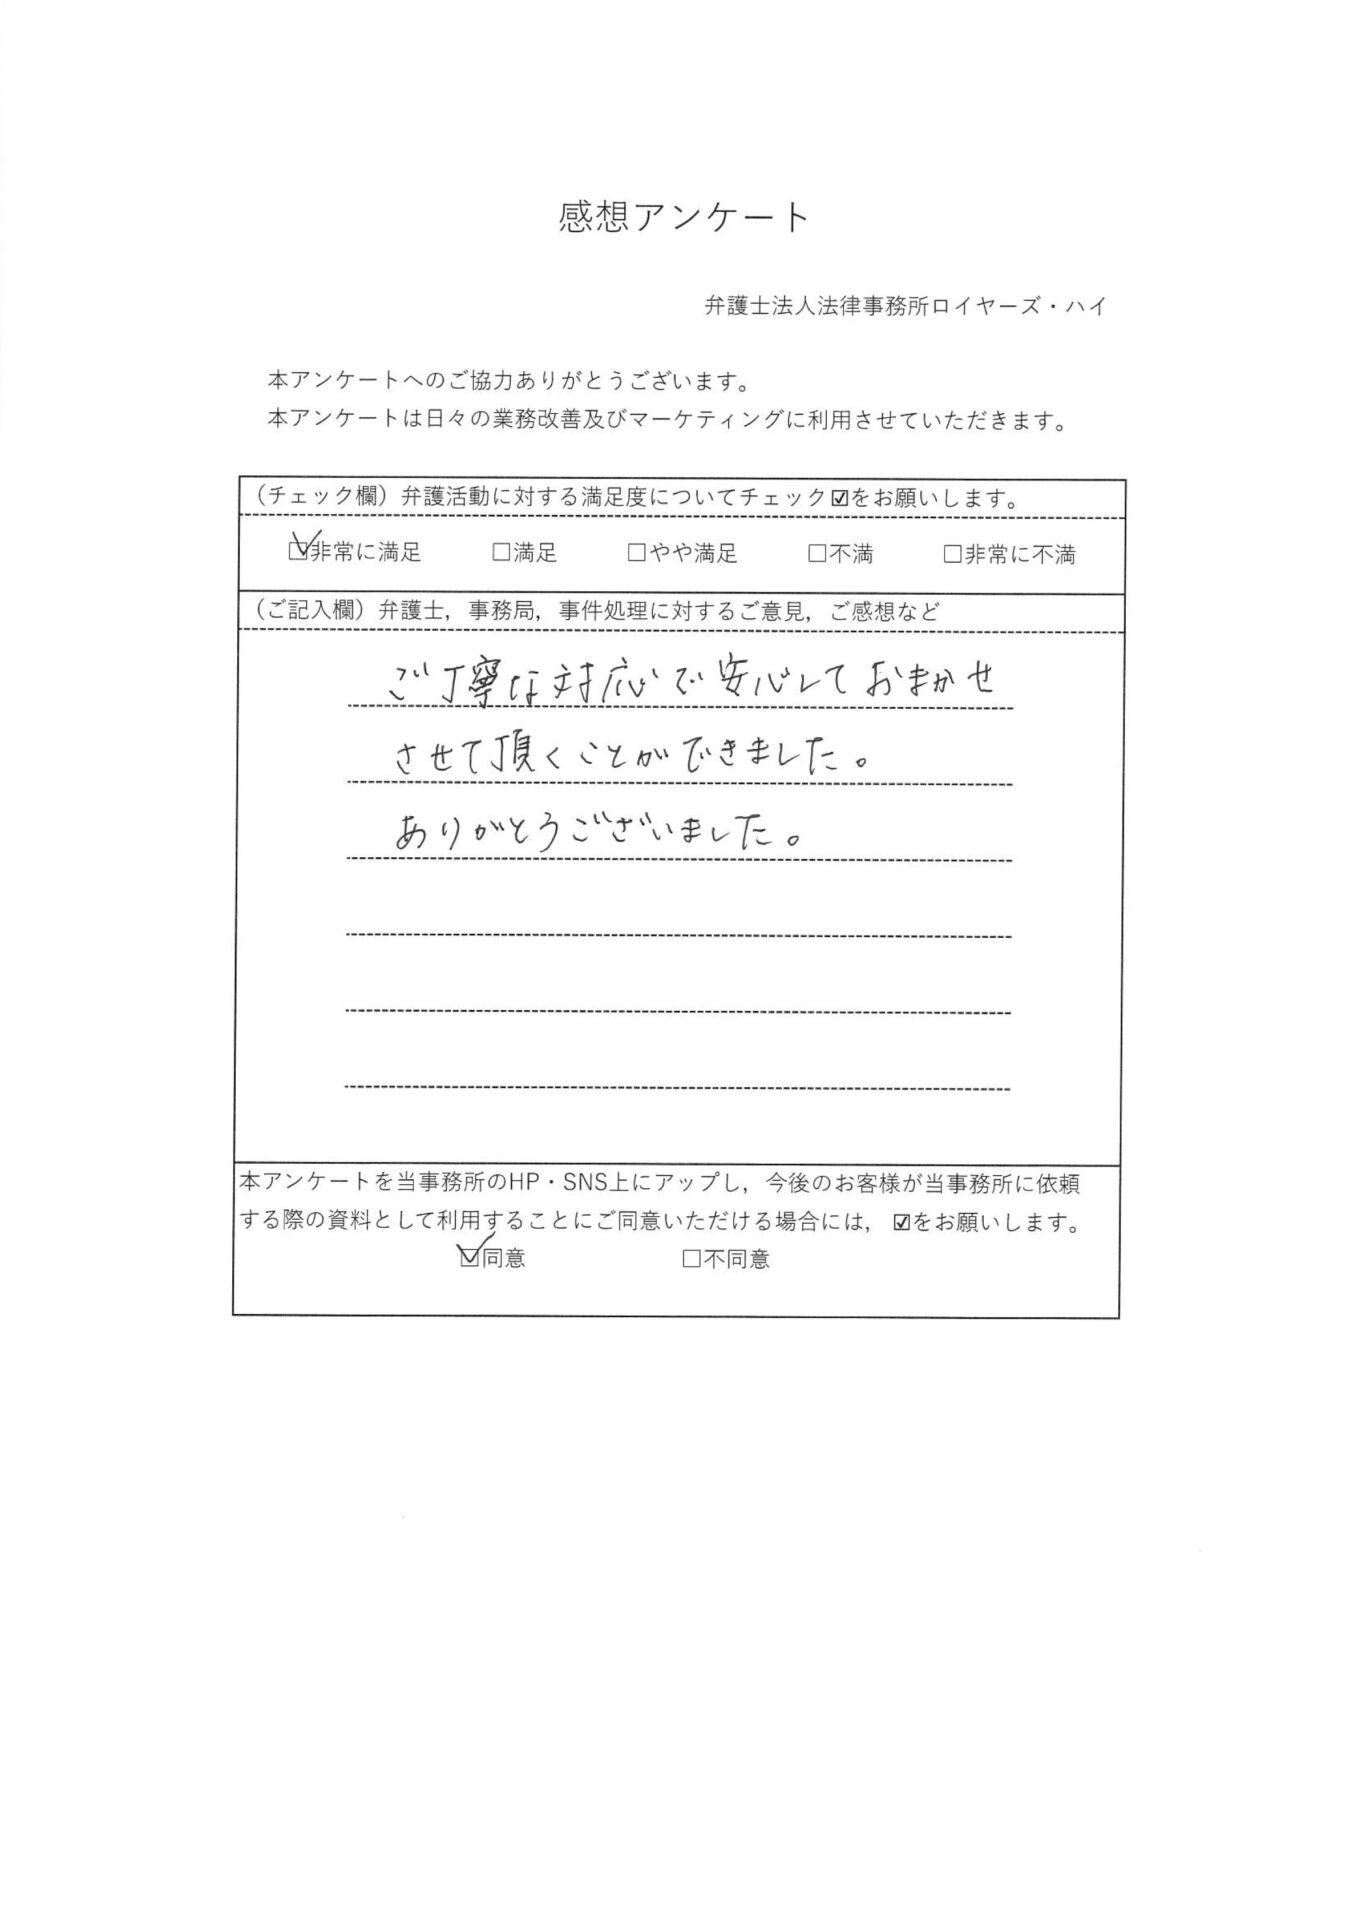 感想アンケート
弁護士法人法律事務所ロイヤーズ・ハイ
本アンケートへのご協力ありがとうございます。
本アンケートは日々の業務改善及びマーケティングに利用させていただきます。
（チェック欄）弁護活動に対する満足度についてチェック☑をお願いします。
☑非常に満足 □満足 □やや満足 □不満 □非常に不満
（ご記入欄）弁護士，事務局，事件処理に対するご意見，ご感想など
ご丁寧な対応で安心しておまかせ
させて頂くことができました。
ありがとうございました。
本アンケートを当事務所のHP・SNS上にアップし，今後のお客様が当事務所に依頼
する際の資料として利用することにご同意いただける場合には，☑をお願いします。
☑同意 □不同意